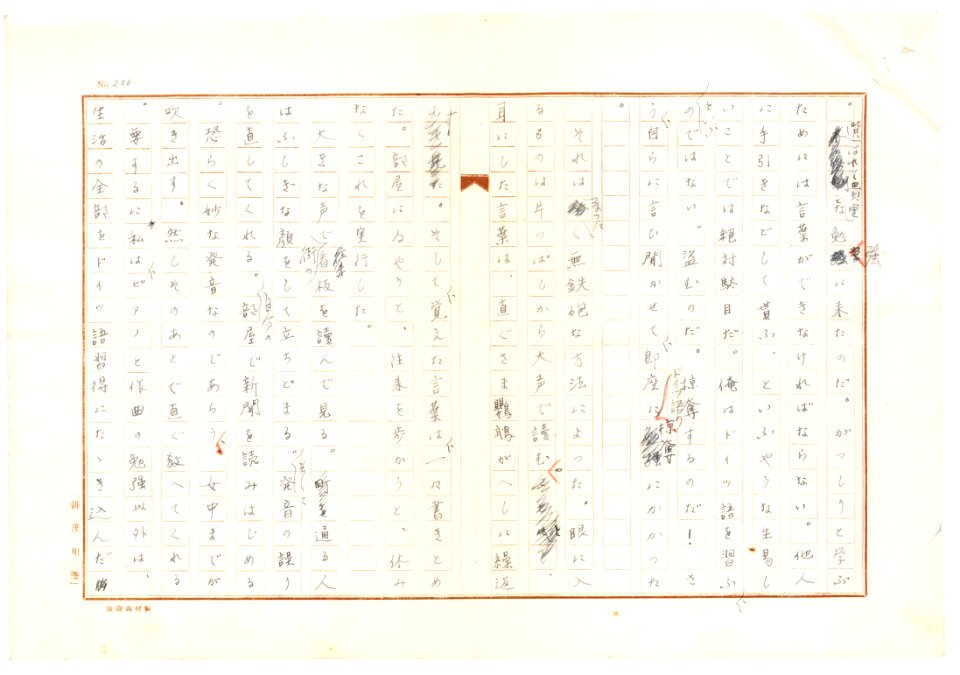 No. 226
。な勉強に来たのだ。がっしりと学ぶ
ためには言葉ができなければならない。他人
に手引きなどして貰ふ、といふやうな生易し
いことでは絶対駄目だ。俺はドイツ語を習ふ
のではない。盗むのだ。掠奪するのだ！さ
う自らに言ひ聞かせて即座にドイツ語の掠奪にかかった
。
それはまったく無鉄砲な方法によった。眼に入
るものは片っぱしから大声で読む。
耳にした言葉は、直ぐさま鸚鵡がへしに繰返
す。そして覚えた言葉は一々書きとめ
た。部屋にゐやうと、往来を歩かうと、休み
なくこれを実行した。
大きな声で街の看板を読んで見る。町を通る人
はふしぎな顔をして立ちどまる。発音の誤り
を直してくれる。自分の部屋で新聞を読みはじめる
。恐らく妙な発音なのであらう。女中までが
吹き出す。然しそのあとで直ぐ教へてくれる
。要するに私はピアノと作曲の勉強以外は、
生活の全部をドイツ語習得にたゝき込んだ